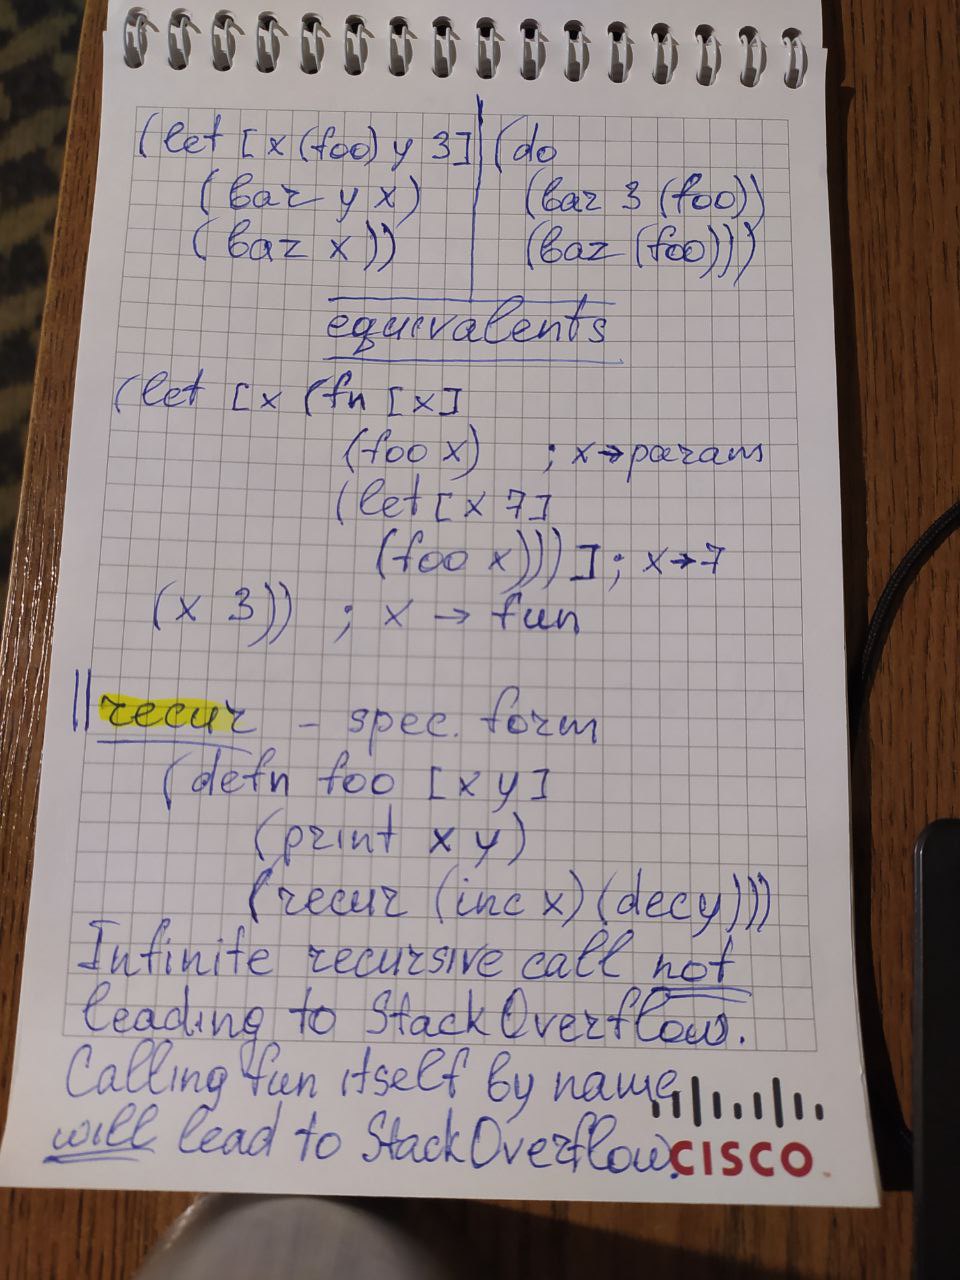 (let [x (foo) y 3] | (do
(bar y x) | (bar 3 (foo))
(baz x)) | (baz (foo)))
equivalents
(let [x (fn [x]
(foo x) ; x→param
(let [x 7]
(foo x)))] ; x→7
(x 3)) ; x → fun
recur - spec. form
(defn foo [x y]
(print x y)
(recur (inc x) (dec y)))
Infinite recursive call not
leading to StackOverflow.
Calling fun itself by name
will lead to StackOverflow.
CISCO